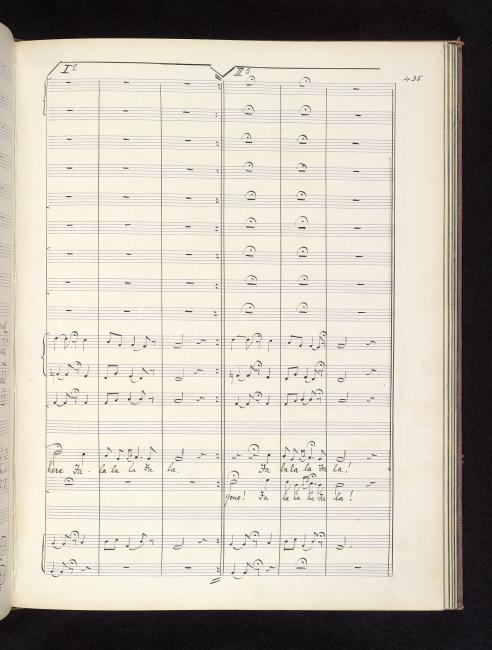 Iº IIº 435
here Fa - la la la Fa la. Fa la la la Fa la!
gone! Fa la la la Fa la!